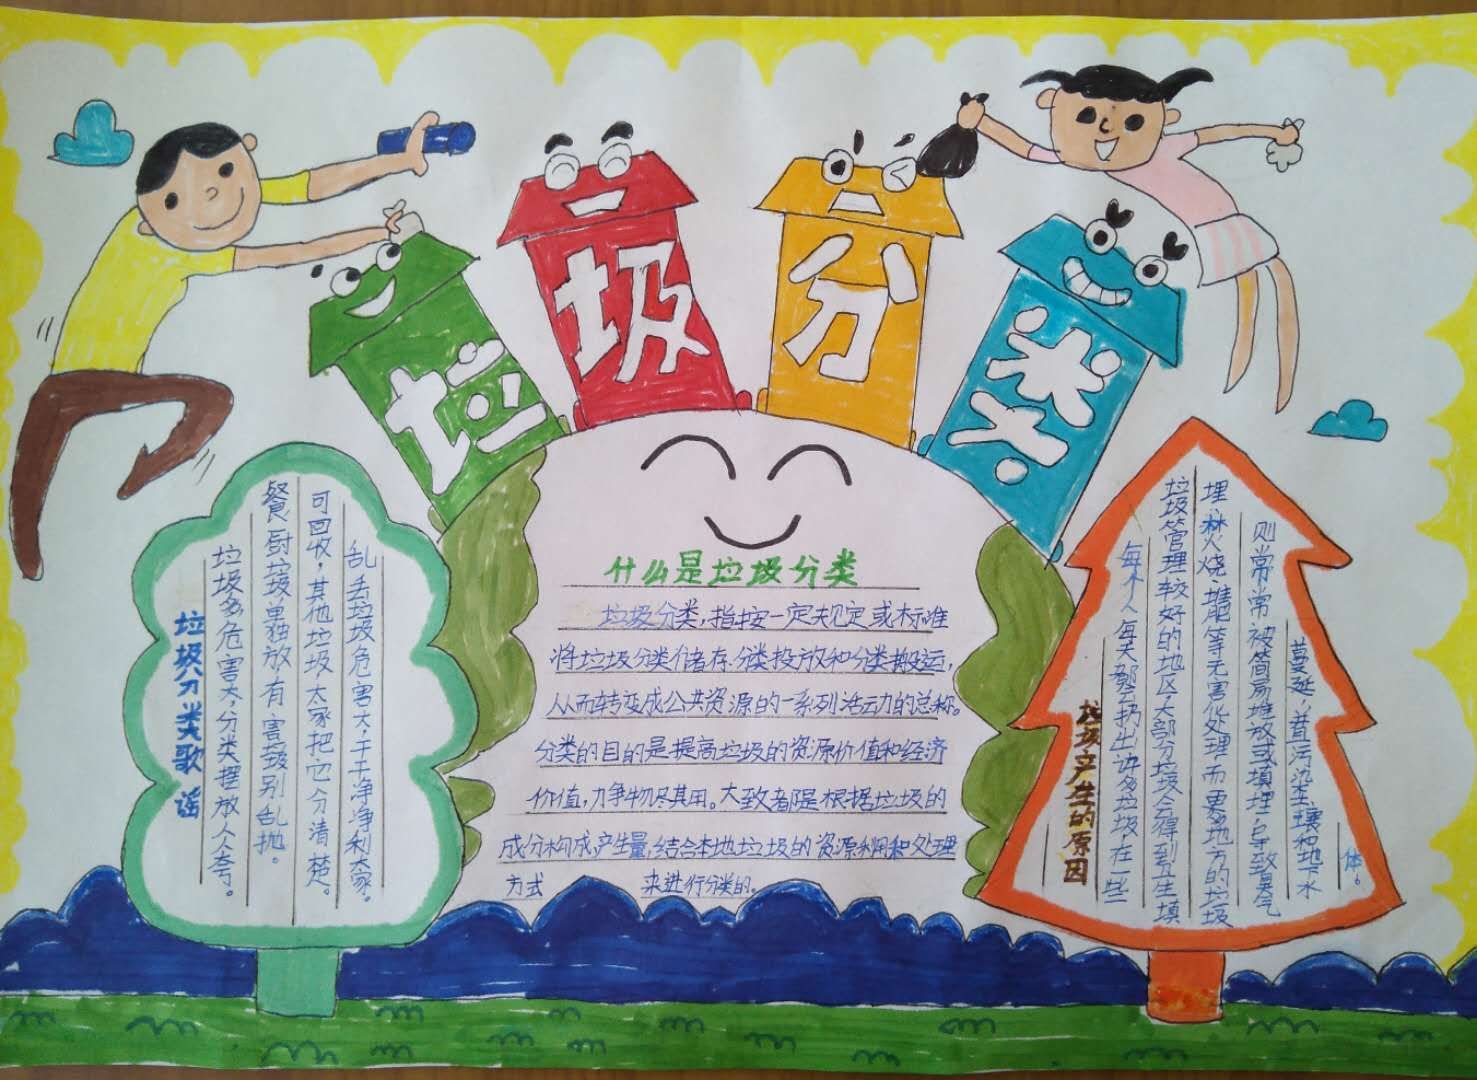 垃圾分类
垃圾分类歌谣
垃圾多危害大,分类摆放人人夸。
餐厨垃圾单独放有害垃圾别乱抛。
可回收,其他垃圾大家把它分清楚。
乱丢垃圾危害大,干干净净利大家。
什么是垃圾分类
垃圾分类,指按一定规定或标准
将垃圾分类储存、分类投放和分类搬运,
从而转变成公共资源的一系列活动的总称。
分类的目的是提高垃圾的资源价值和经济
价值,力争物尽其用。大致都是根据垃圾的
成分构成,产生量,结合本地垃圾的资源利用和处理
方式 来进行分类的。
垃圾产生的原因
每个人每天都会扔出许多垃圾在一些
垃圾管理较好的地区大部分垃圾会得到卫生填
埋、焚烧、堆肥等无害化处理而更多地方的垃圾
则常常被简易堆放或填埋导致臭气
蔓延,并污染土壤和地下水
体。